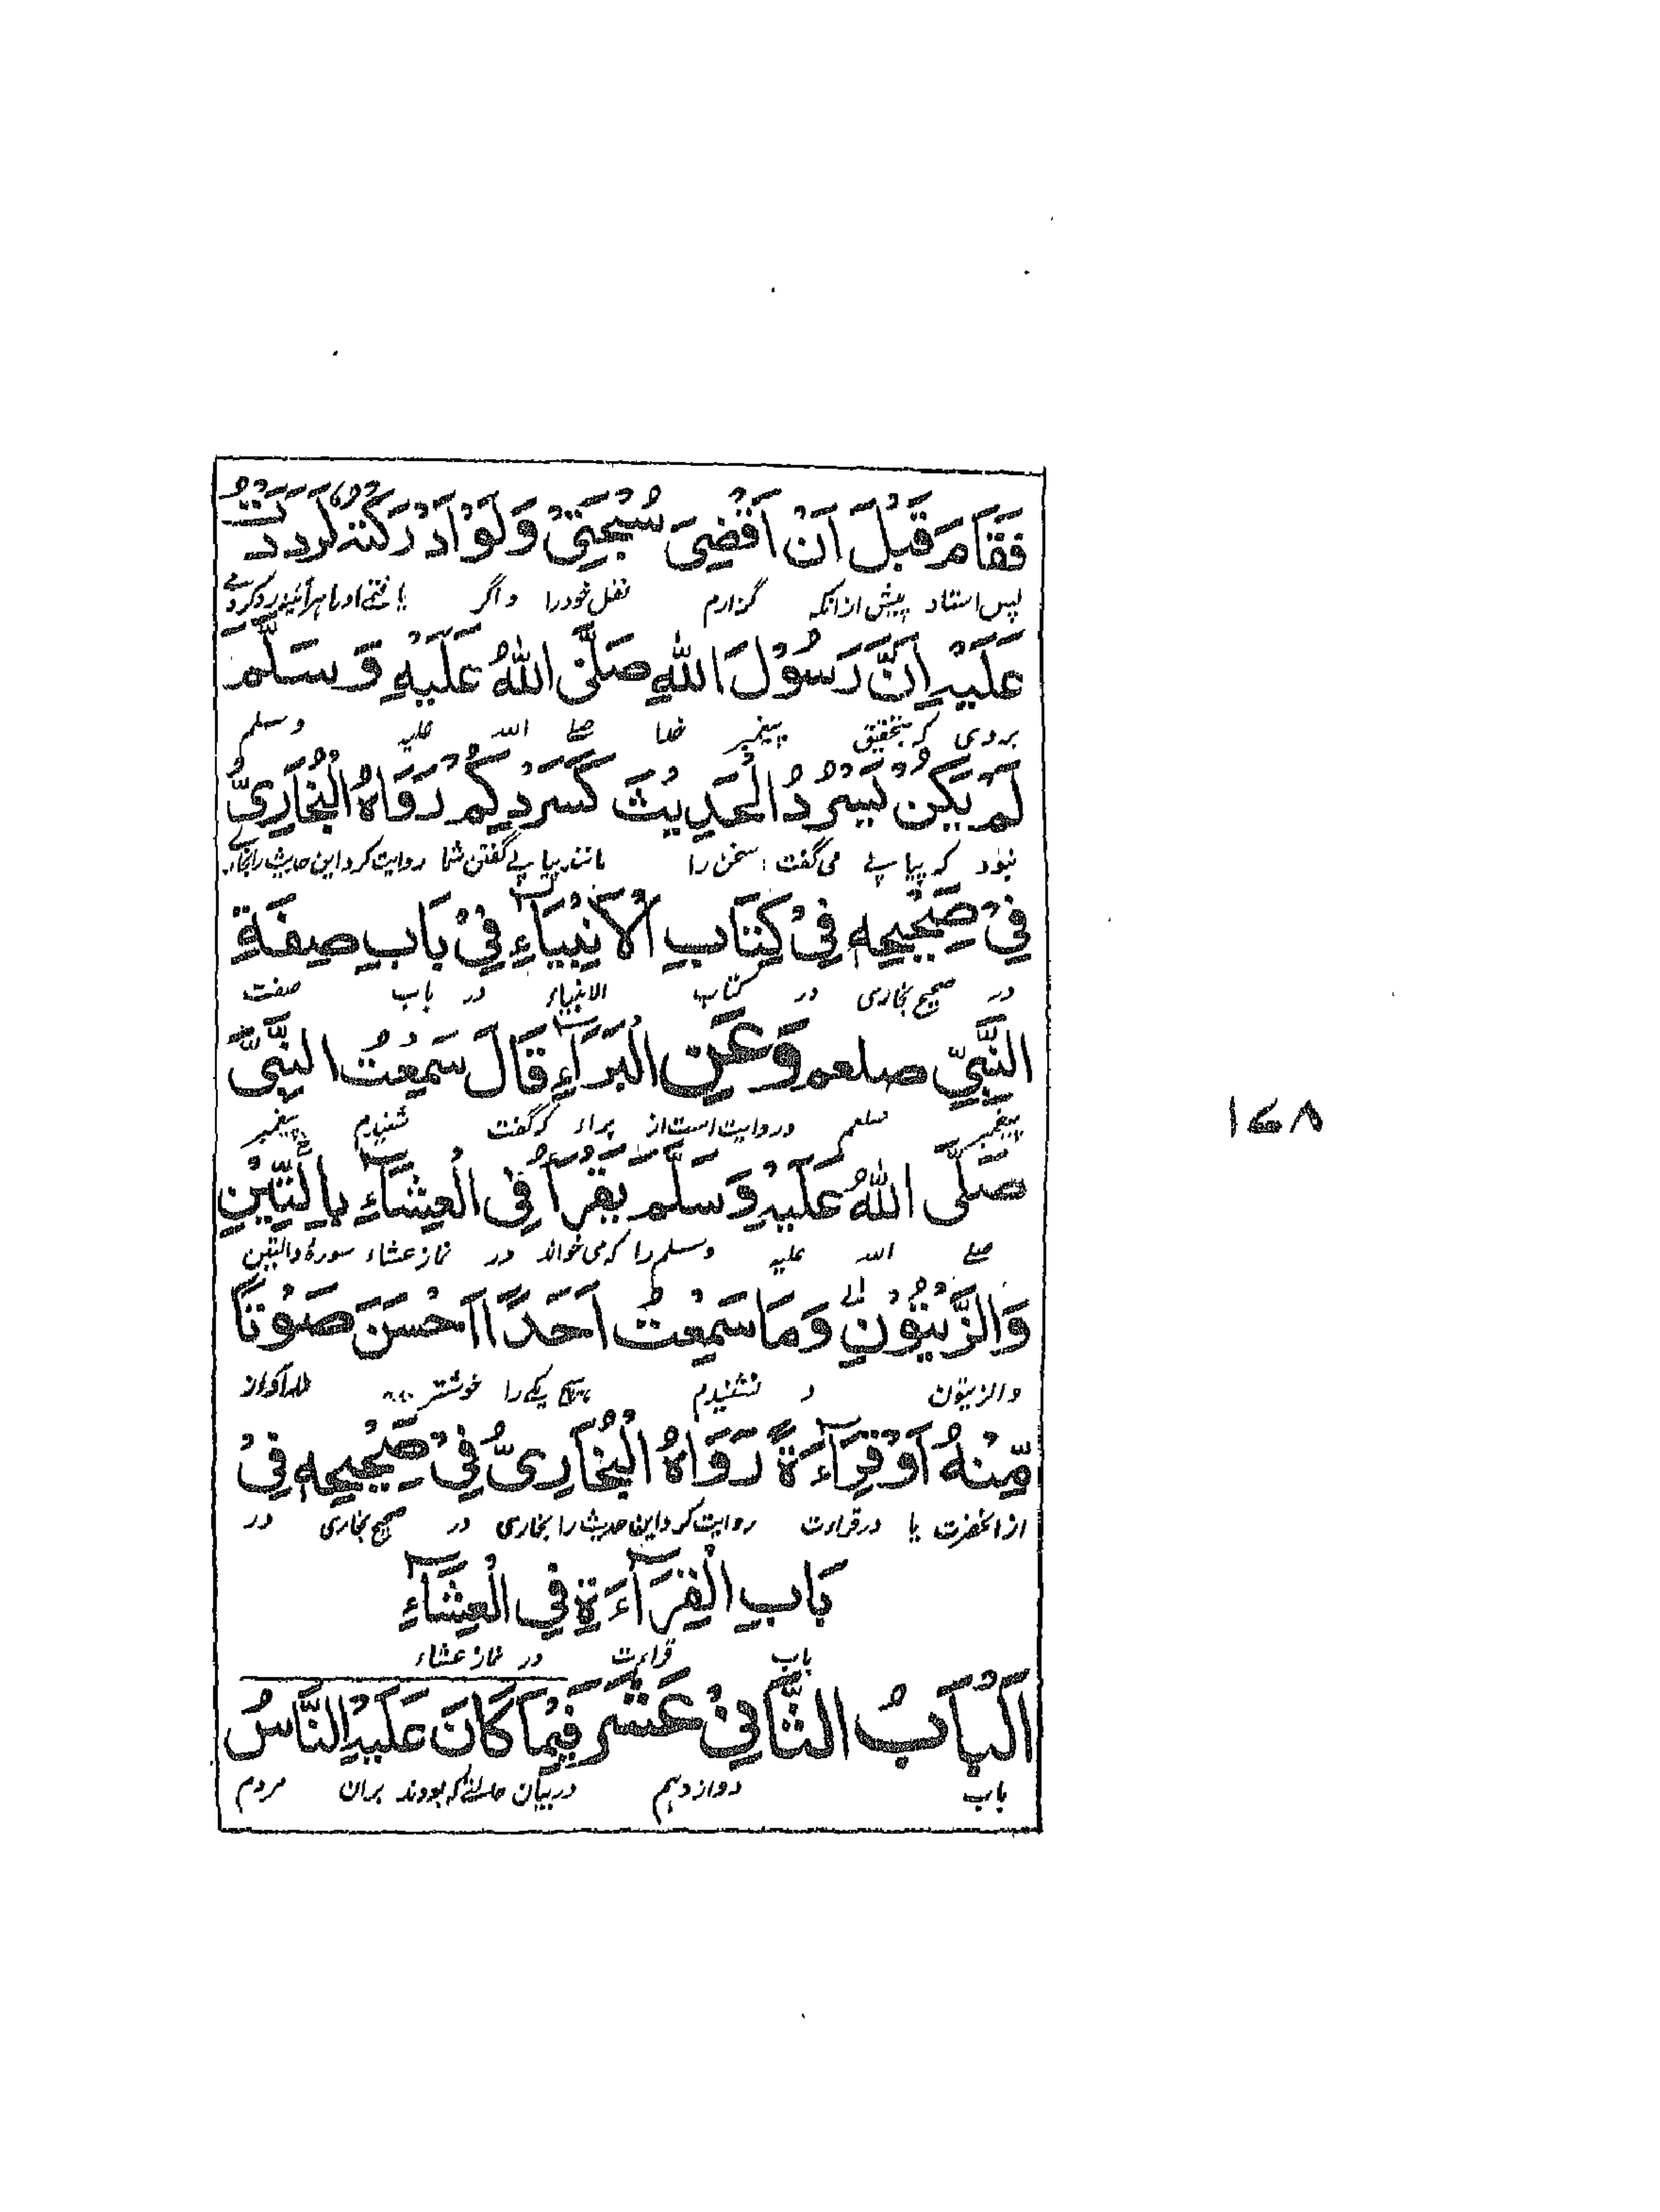 فَقَامَ قَبْلَ اَنْ اَقْضِىَ سُبْحَتِىْ وَلَوْ اَدْرَكْتُهُ لَرَدَدْتُّ
پس استاد پیش ازانکه گزارم نفل خودرا و اگر یافتمے اورا هرآئینه رد کردمے
عَلَيْهِ اِنَّ رَسُوْلَ اللّٰهِ صَلَّى اللّٰهُ عَلَيْهِ وَسَلَّمَ
بروی که بتحقیق پیغمبر خدا صلے الله علیه وسلم
لَمْ يَكُنْ يَسْرُدُ الْحَدِيْثَ كَسَرْدِكُمْ رَوَاهُ الْبُخَارِىُّ
نبود که پیا پے می گفت سخن را مانند پیا پے گفتن شما روایت کرد این حدیث را بخارے
فِىْ صَحِيْحِهٖ فِىْ كِتَابِ الْاَنْبِيَآءِ فِىْ بَابِ صِفَةِ
در صحیح بخاری در کتاب الانبیاء در باب صفت
النَّبِيِّ صلعم وَعَنِ الْبَرَآءِ قَالَ سَمِعْتُ النَّبِىَّ
پیغمبر صلعم و روایت است از براء که گفت شنیدم پیغمبر
صَلَّى اللّٰهُ عَلَيْهِ وَسَلَّمَ يَقْرَأُ فِى الْعِشَآءِ بِالتِّيْنِ
صلے الله علیه وسلم را که می خواند در نماز عشاء سورۀ والتین
وَالزَّيْتُوْنِ وَمَا سَمِعْتُ اَحَدًا اَحْسَنَ صَوْتًا
والزیتون و نشنیدم هیچ یکے را خوشتر آواز
مِّنْهُ اَوْ قِرَآءَةً رَوَاهُ الْبُخَارِىُّ فِىْ صَحِيْحِهٖ فِىْ
از آنحضرت یا در قراءت روایت کرد این حدیث را بخاری در صحیح بخاری در
بَابِ الْقِرَآءَةِ فِى الْعِشَآءِ
باب قراءت در نماز عشاء
اَلْبَابُ الثَّانِىْ عَشَرَ فِيْمَا كَانَ عَلَيْهِ النَّاسُ
باب دوازدهم در بیان حالتے که بودند بران مردم
۱۶۸